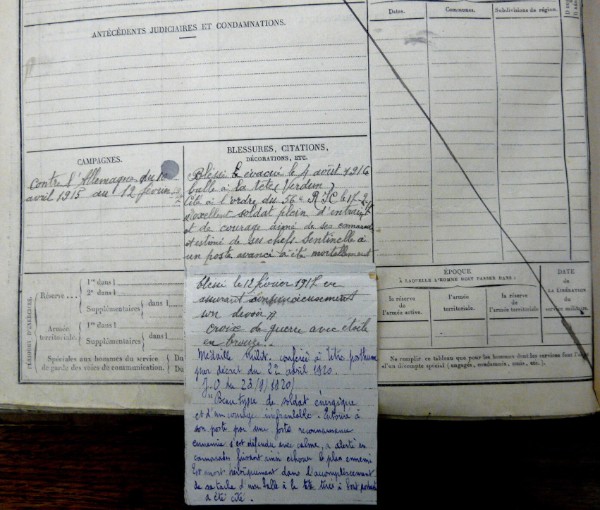 ANTÉCÉDENTS JUDICIAIRES ET CONDAMNATIONS.
Dates.
Communes.
Subdivisions de région.
CAMPAGNES.
Contre l'Allemagne du 10
avril 1915 au 12 février
BLESSURES, CITATIONS,
DÉCORATIONS, ETC.
Blessé évacué le 4 août 1916
balle à la tête Verdun
Cité à l'ordre du 36e R.I.C.
excellent soldat plein d'entrain
et de courage aimé de ses camarades
estimé de ses chefs. Sentinelle à
un poste avancé a été mortellement
blessé le 12 février 1917 en
assurant consciencieusement
son devoir
Croix de guerre avec étoile
en bronze.
Médaille milit. conférée à titre posthume
par décret du 22 avril 1920.
J.O. du 23/9/1920
"Beau type de soldat énergique
et d'un courage inébranlable. Entouré à
son poste par une forte reconnaissance
ennemie s'est défendu avec calme, a alerté ses
camarades faisant ainsi échouer le plan ennemi
Est mort héroïquement dans l'accomplissement
de sa tâche d'une balle à la tête
a été cité.
PÉRIODES D'EXERCICES.
Réserve
1re dans l
2e dans l
Supplémentaires
dans l
Armée
territoriale.
1re dans l
Supplémentaires
dans l
Spéciales aux hommes du service
de garde des voies de communication.
Du
Du
ÉPOQUE
À LAQUELLE L'HOMME DOIT PASSER DANS :
la réserve
de l'armée active.
l'armée
territoriale.
la réserve
de l'armée territoriale.
DATE
DE LA LIBÉRATION
DU SERVICE MILITAIRE.
Ne remplir ce tableau que pour les hommes dont les services font l'objet
d'un décompte spécial (engagés, condamnés, omis, etc.).